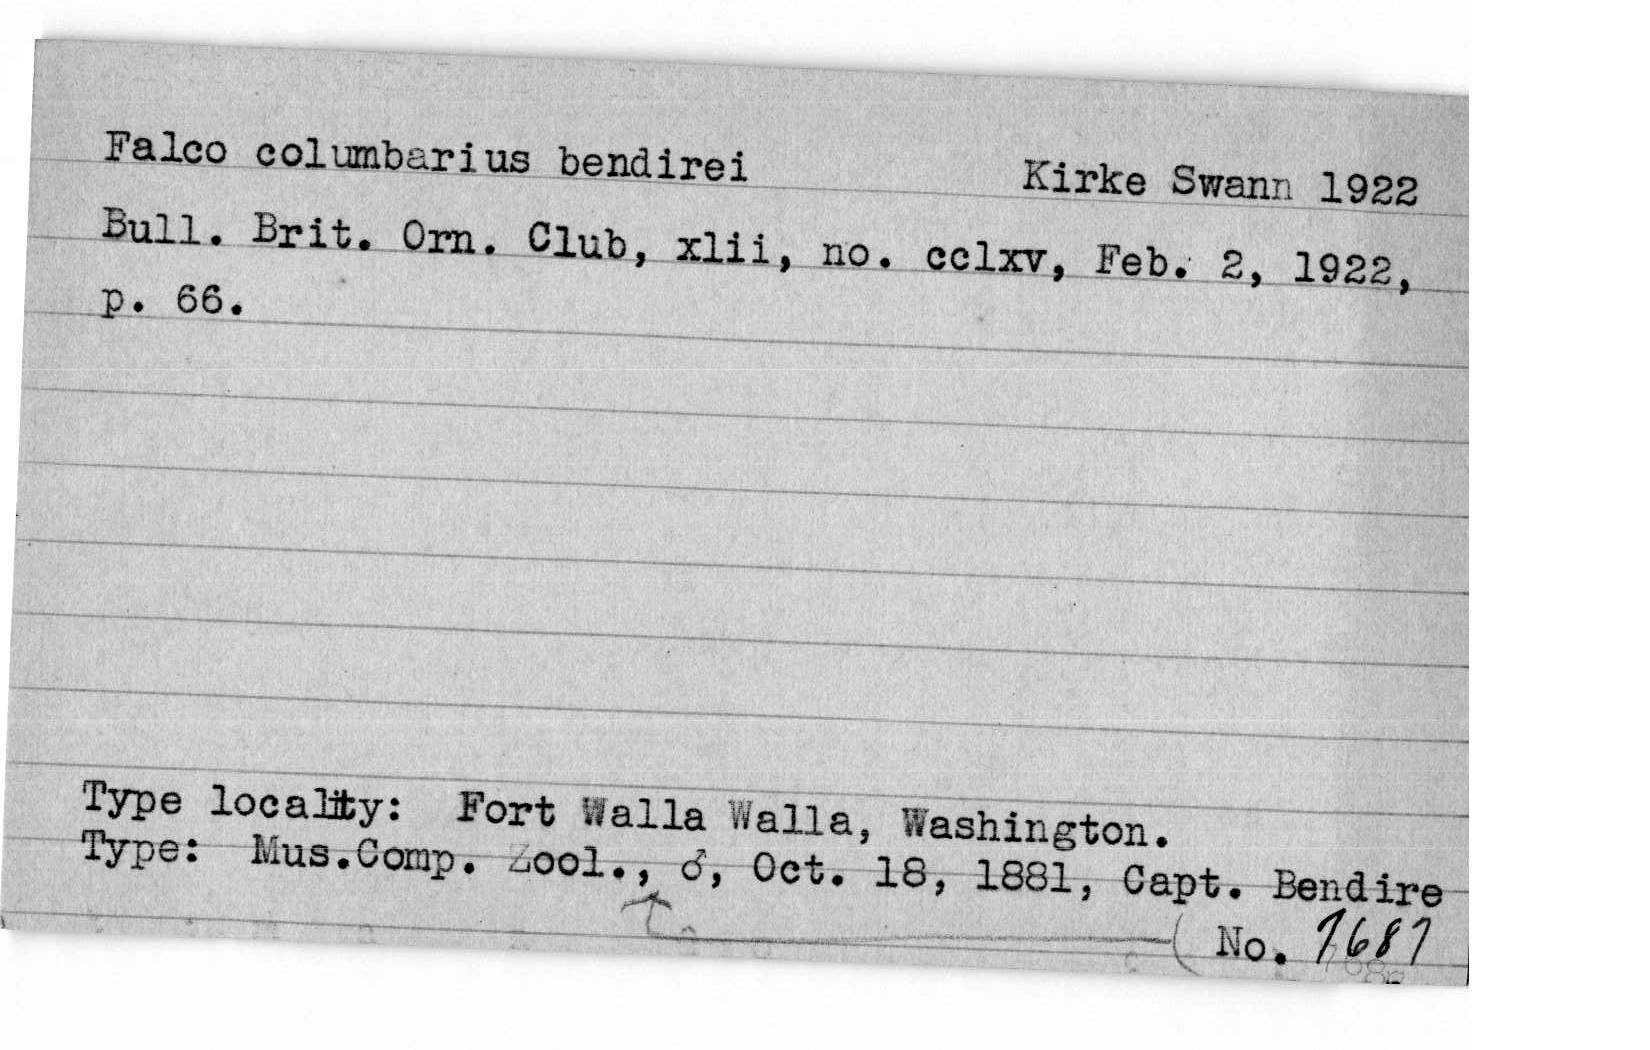 Falco columbarius bendirei Kirke Swann 1922
Bull. Brit. Orn. Club, xlii, no. cclxv, Feb. 2, 1922,
p. 66.
Type locality: Fort Walla Walla, Washington.
Type: Mus.Comp. Zool., ♂, Oct. 18, 1881, Capt. Bendire
No. 7687